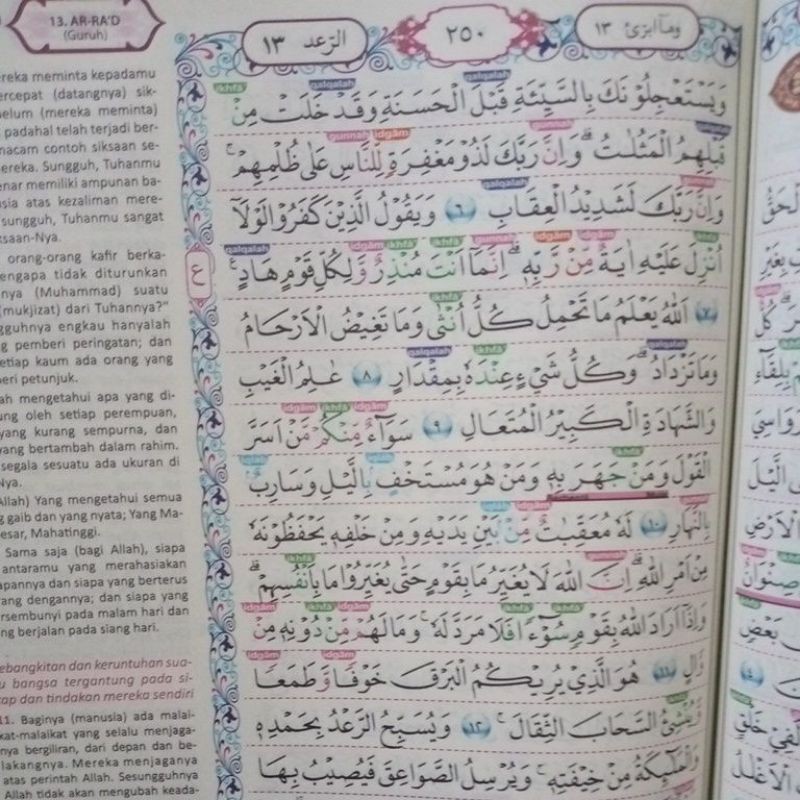 13. AR-RA'D
(Guruh)
الرّعد ١٣
٢٥٠
ومآابرّئ ١٣
ereka meminta kepadamu
ercepat (datangnya) sik-
belum (mereka meminta)
padahal telah terjadi ber-
macam contoh siksaan se-
ereka. Sungguh, Tuhanmu
enar memiliki ampunan ba-
usia atas kezaliman mere-
sungguh, Tuhanmu sangat
ksaan-Nya.
orang-orang kafir berka-
engapa tidak diturunkan
nya (Muhammad) suatu
(mukjizat) dari Tuhannya?"
gguhnya engkau hanyalah
g pemberi peringatan; dan
etiap kaum ada orang yang
eri petunjuk.
ah mengetahui apa yang di-
ung oleh setiap perempuan,
yang kurang sempurna, dan
yang bertambah dalam rahim.
segala sesuatu ada ukuran di
Nya.
Allah) Yang mengetahui semua
g gaib dan yang nyata; Yang Ma-
esar, Mahatinggi.
Sama saja (bagi Allah), siapa
antaramu yang merahasiakan
apannya dan siapa yang berterus
rang dengannya; dan siapa yang
ersembunyi pada malam hari dan
ng berjalan pada siang hari.
ebangkitan dan keruntuhan sua-
u bangsa tergantung pada si-
ap dan tindakan mereka sendiri
11. Baginya (manusia) ada malai-
kat-malaikat yang selalu menjaga-
nya bergiliran, dari depan dan be-
lakangnya. Mereka menjaganya
atas perintah Allah. Sesungguhnya
Allah tidak akan mengubah keada-
وَيَسْتَعْجِلُوْنَكَ بِالسَّيِّئَةِ قَبْلَ الْحَسَنَةِ وَقَدْ خَلَتْ مِنْ
قَبْلِهِمُ الْمَثُلٰتُۗ وَاِنَّ رَبَّكَ لَذُوْ مَغْفِرَةٍ لِّلنَّاسِ عَلٰى ظُلْمِهِمْۚ
وَاِنَّ رَبَّكَ لَشَدِيْدُ الْعِقَابِ ٦ وَيَقُوْلُ الَّذِيْنَ كَفَرُوْا لَوْلَآ
اُنْزِلَ عَلَيْهِ اٰيَةٌ مِّنْ رَّبِّهٖۗ اِنَّمَآ اَنْتَ مُنْذِرٌ وَّلِكُلِّ قَوْمٍ هَادٍۚ
٧ اَللّٰهُ يَعْلَمُ مَا تَحْمِلُ كُلُّ اُنْثٰى وَمَا تَغِيْضُ الْاَرْحَامُ
وَمَا تَزْدَادُۗ وَكُلُّ شَيْءٍ عِنْدَهٗ بِمِقْدَارٍ ٨ عٰلِمُ الْغَيْبِ
وَالشَّهَادَةِ الْكَبِيْرُ الْمُتَعَالِ ٩ سَوَآءٌ مِّنْكُمْ مَّنْ اَسَرَّ
الْقَوْلَ وَمَنْ جَهَرَ بِهٖ وَمَنْ هُوَ مُسْتَخْفٍۢ بِالَّيْلِ وَسَارِبٌۢ
بِالنَّهَارِ ١٠ لَهٗ مُعَقِّبٰتٌ مِّنْۢ بَيْنِ يَدَيْهِ وَمِنْ خَلْفِهٖ يَحْفَظُوْنَهٗ
مِنْ اَمْرِ اللّٰهِۗ اِنَّ اللّٰهَ لَا يُغَيِّرُ مَا بِقَوْمٍ حَتّٰى يُغَيِّرُوْا مَا بِاَنْفُسِهِمْۗ
وَاِذَآ اَرَادَ اللّٰهُ بِقَوْمٍ سُوْۤءًا فَلَا مَرَدَّ لَهٗۚ وَمَا لَهُمْ مِّنْ دُوْنِهٖ مِنْ
وَّالٍ ١١ هُوَ الَّذِيْ يُرِيْكُمُ الْبَرْقَ خَوْفًا وَّطَمَعًا
وَّيُنْشِئُ السَّحَابَ الثِّقَالَۚ ١٢ وَيُسَبِّحُ الرَّعْدُ بِحَمْدِهٖ
وَالْمَلٰۤىِٕكَةُ مِنْ خِيْفَتِهٖۚ وَيُرْسِلُ الصَّوَاعِقَ فَيُصِيْبُ بِهَا
ع